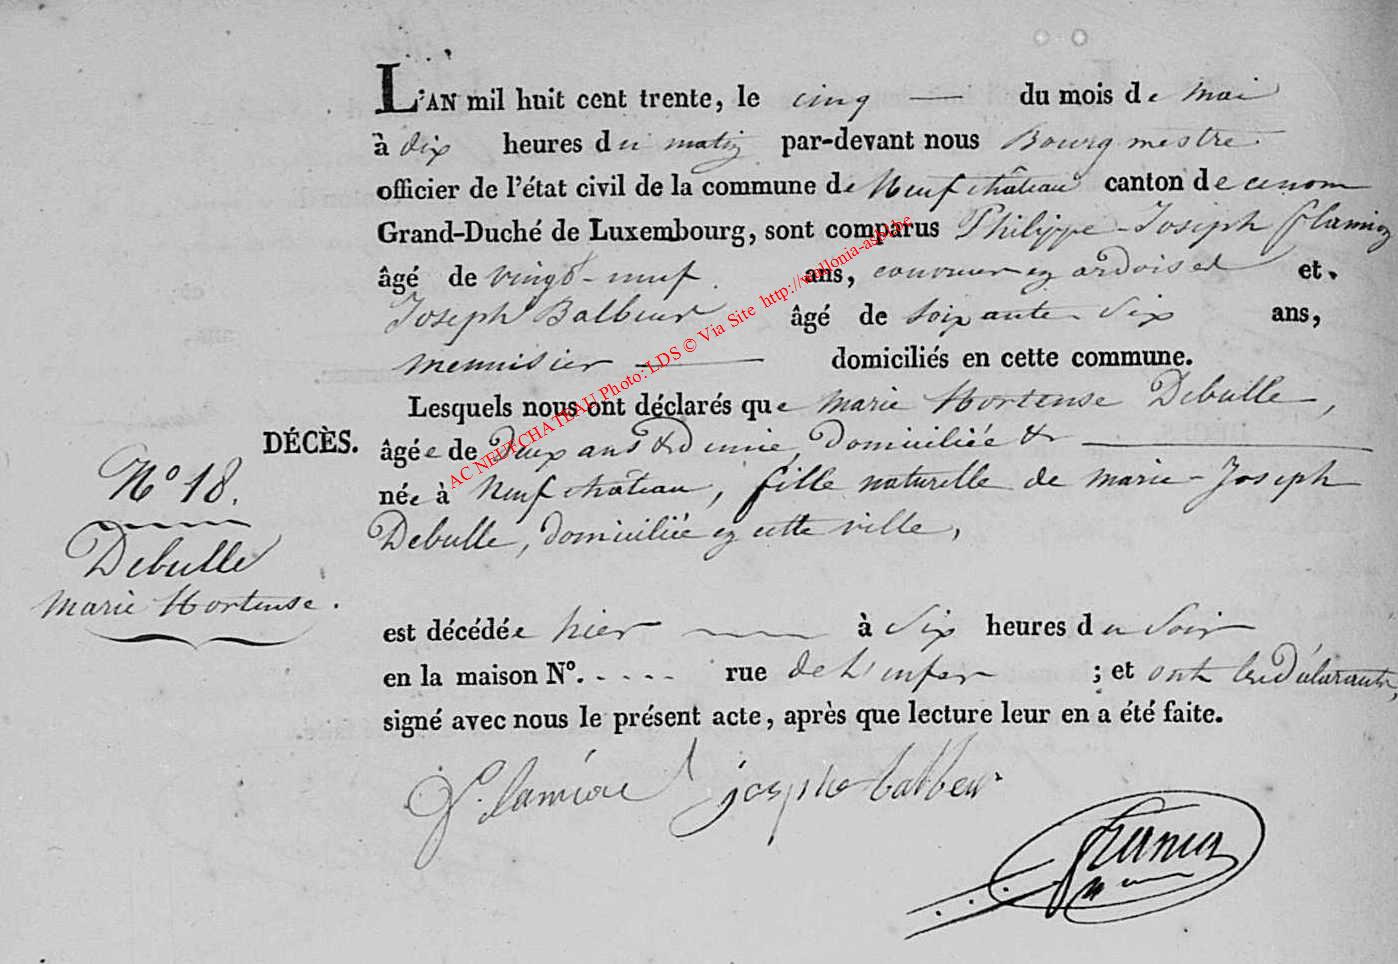 L'AN mil huit cent trente, le cinq du mois de Mai
à dix heures du matin par-devant nous Bourgmestre
officier de l'état civil de la commune de Neufchâteau canton de ce nom
Grand-Duché de Luxembourg, sont comparus Philippe-Joseph
âgé de vingt-neuf ans, couvreur en ardoises et
Joseph Balbeur âgé de soixante six ans,
menuisier domiciliés en cette commune.
Lesquels nous ont déclarés que Marie Hortense Debulle,
DÉCÈS.
âgée de Deux ans & demie, domiciliée &
née à Neufchâteau, fille naturelle de marie-Joseph
Debulle, domiciliée en cette ville,
N° 18.
Debulle
Marie Hortense.
est décédée hier à Six heures du Soir
en la maison N°. rue de L'enfer ; et ont les Déclarants,
signé avec nous le présent acte, après que lecture leur en a été faite.
joseph balbeur
AC NEUFCHATEAU Photo: LDS © Via Site http://wallonia-asbl.be